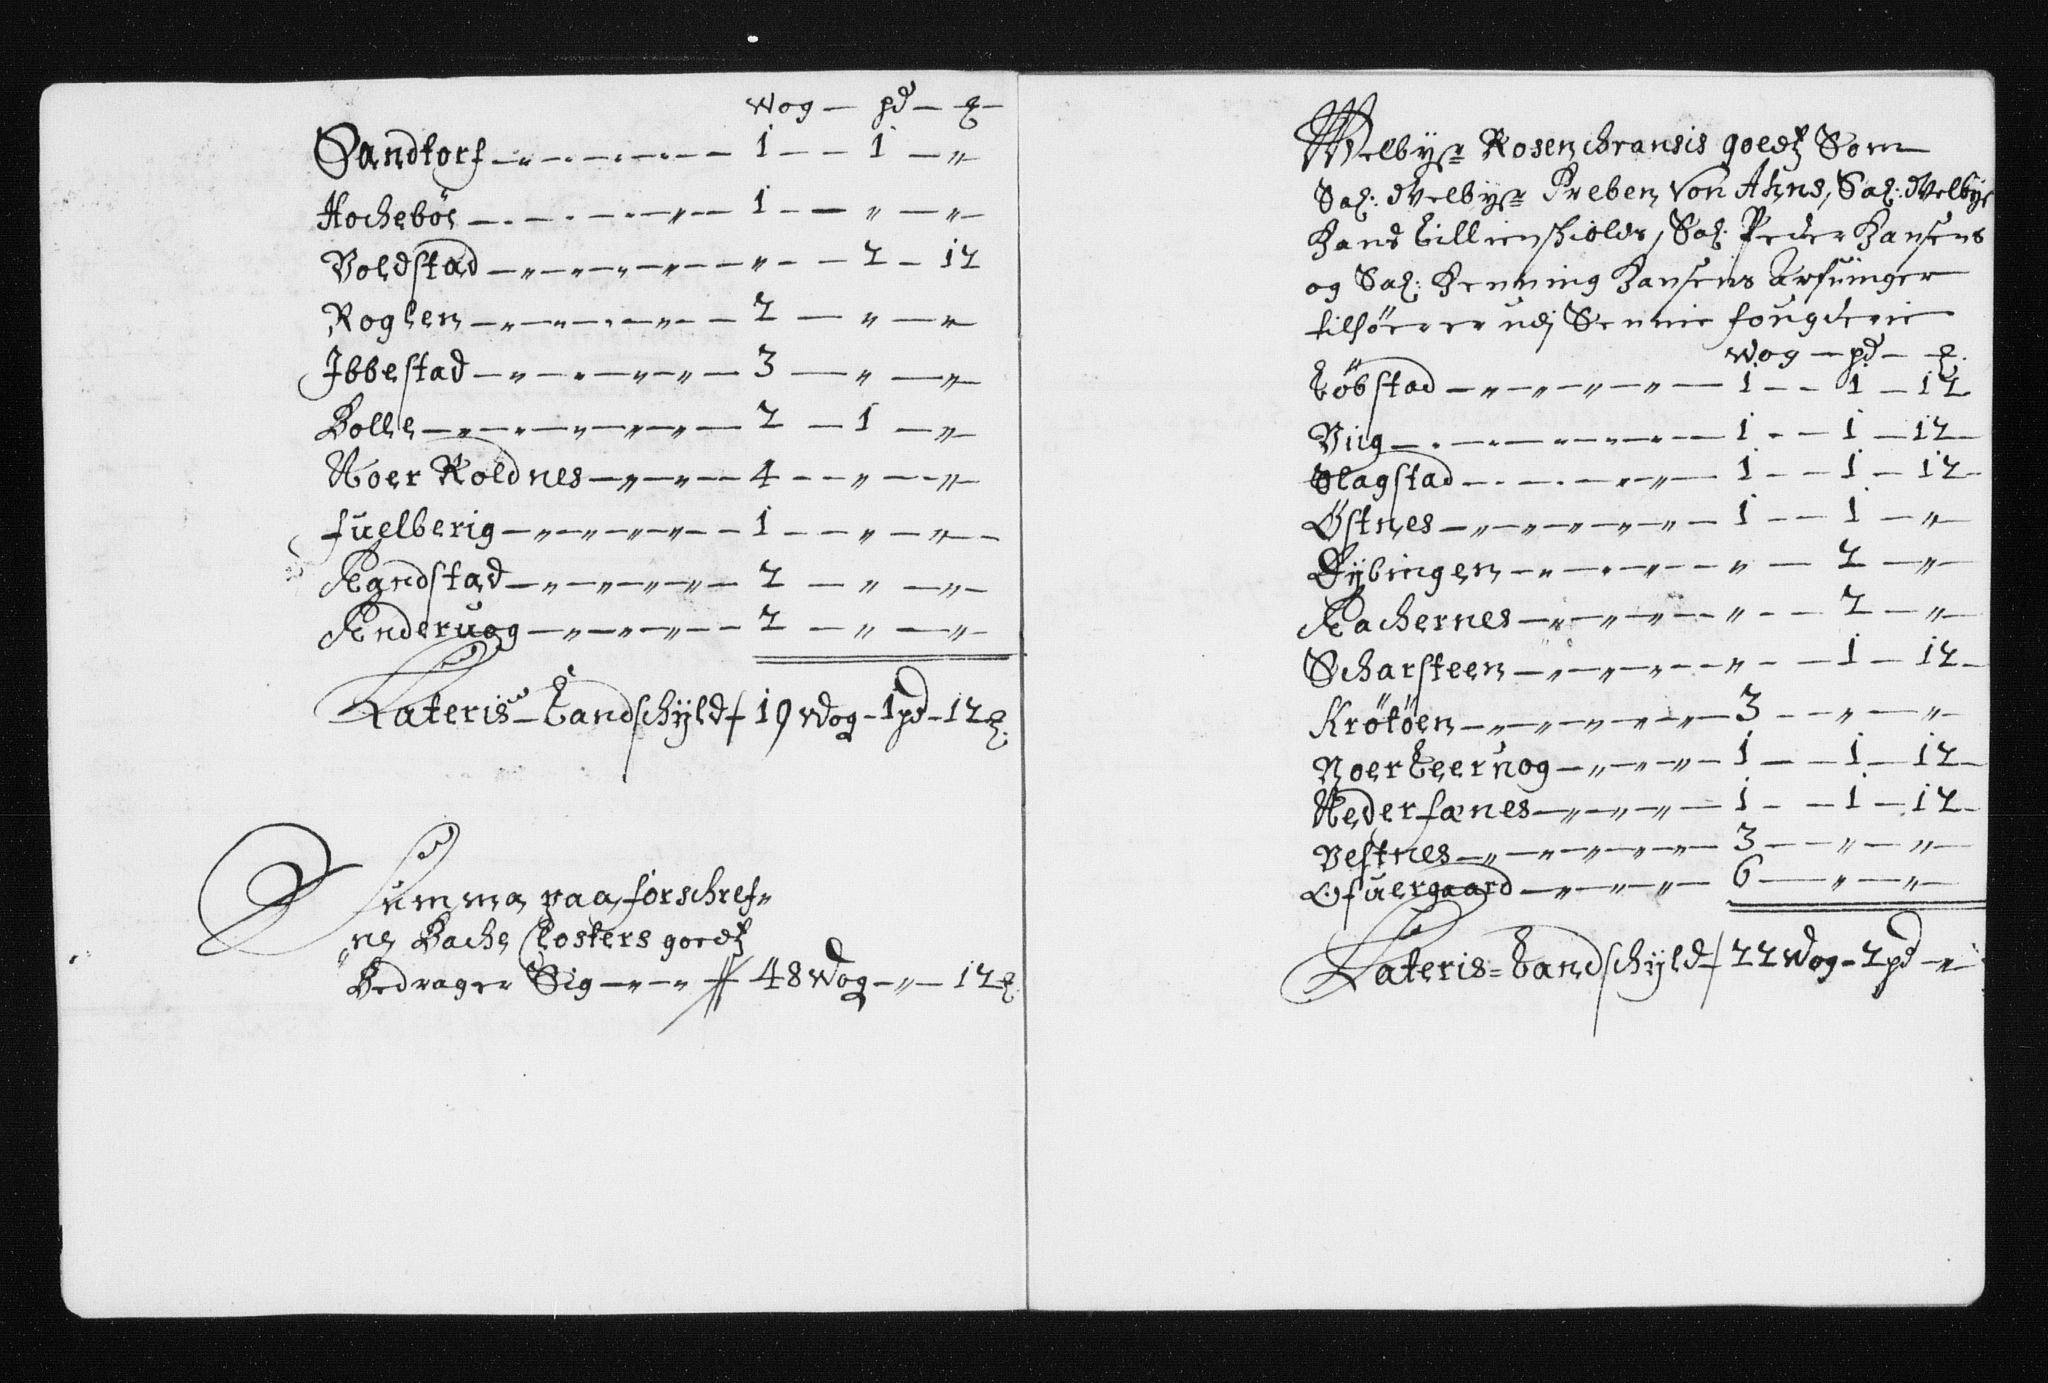 Wog — pd — ℔
Sandtorf — 1 — 1 — „
Hochebøe — 1 — „ — „
Voldstad — „ — 2 — 12
Roglen — 2 — „ — „
Ibbestad — 3 — „ — „
Bolle — 2 — 1 — „
Noer Roldnes — 4 — „ — „
fuelberig — 1 — „ — „
Randstad — 2 — „ — „
Anderuog — 2 — „ — „
Lateris — Landschÿld 19 Wog — 1 pd — 12 ℔.
Summa paa forschref-
ne Bache Closters goedtz
Bedrager Sig — 48 Wog — „ — 12 ℔.
Welbyr: Rosenchransis goedtz Som
Sal: Welbyr: Preben Von Ahns, Sal: Welbyr
Hans Lillienskiolds, Sal: Peder Hansens
og Sal: Henning Hansens Arfuinger
tilhöerer udj Sennie fougderie
Wog — pd — ℔.
Löbstad — 1 — 1 — 12
Viig — 1 — 1 — 12
Slagstad — 1 — 1 — 12
Östnes — 1 — 1 — „
Dÿbingen — „ — 2 — „
Rachernes — „ — 2 — „
Scharsteen — „ — 1 — 12
Krötöen — 3 — „ — „
Noer Leeruog — 1 — 1 — 12
Nederfænes — 1 — 1 — 12
Vestnes — 3 — „ — „
Ofuergaard — 6 — „ — „
Lateris = Landschÿld 22 Wog — 2 pd — „